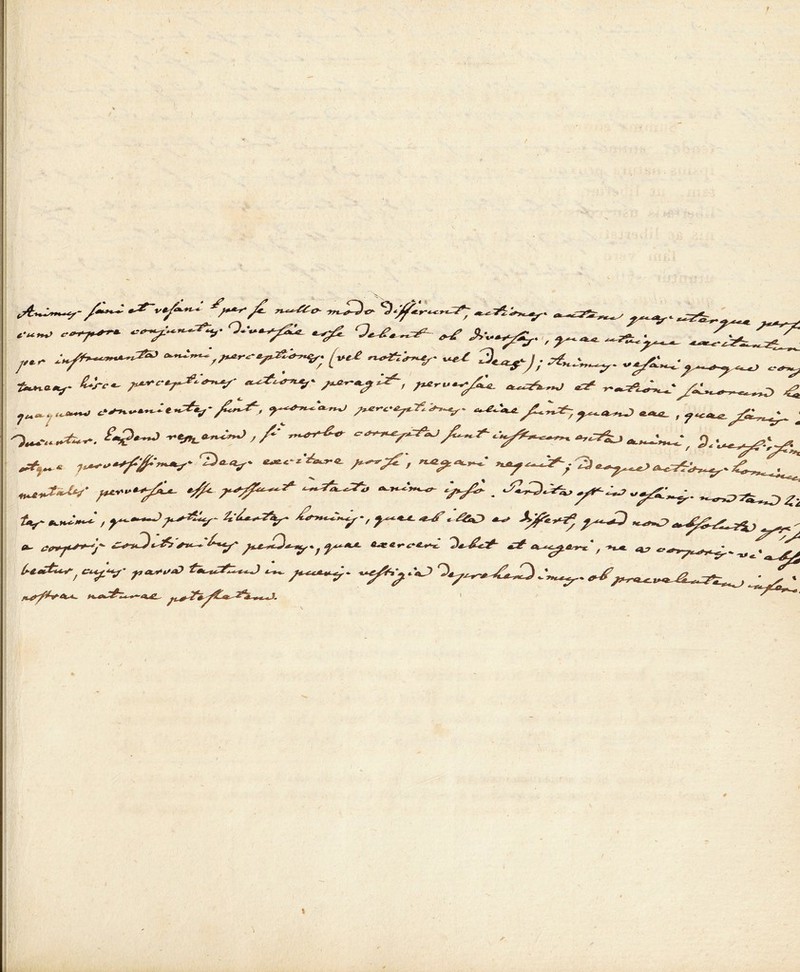 Animus sani et vesani per se nullo modo differunt, actiones autem quas uterque
cum corpore conjunctus diversae esse debent ob diversas, quae utrique excitantur
per instrumenta animi, perceptiones, (vel notiones vel Ideas); Animus vesani quoque
taneas hisce perceptiones actiones peragit, perversae autem et rationi sanorum
quaquam convenientes sunt, quoniam perceptiones aliae sunt, quam eae, quae sanis
ducuntur. Eadem enim, si morbo correpta sunt instrumenta animi,
atque perversissimas Ideas excitare posse, negari nequit; Ideoque actiones
mentales perversae esse possunt intacto animo ipso. Perdita est in vesanis non tam
tas animi, quam potius libertas hominis, quae ab illa eo differt, quod non absoluta est,
a corporis conditionibus pendens, quae exerceri debet et augeri, ne a corporis vi
beatur, cujus parva tantum in pueris vestigia deprehendimus ob praevalentem
nostrae naturae potestatem.